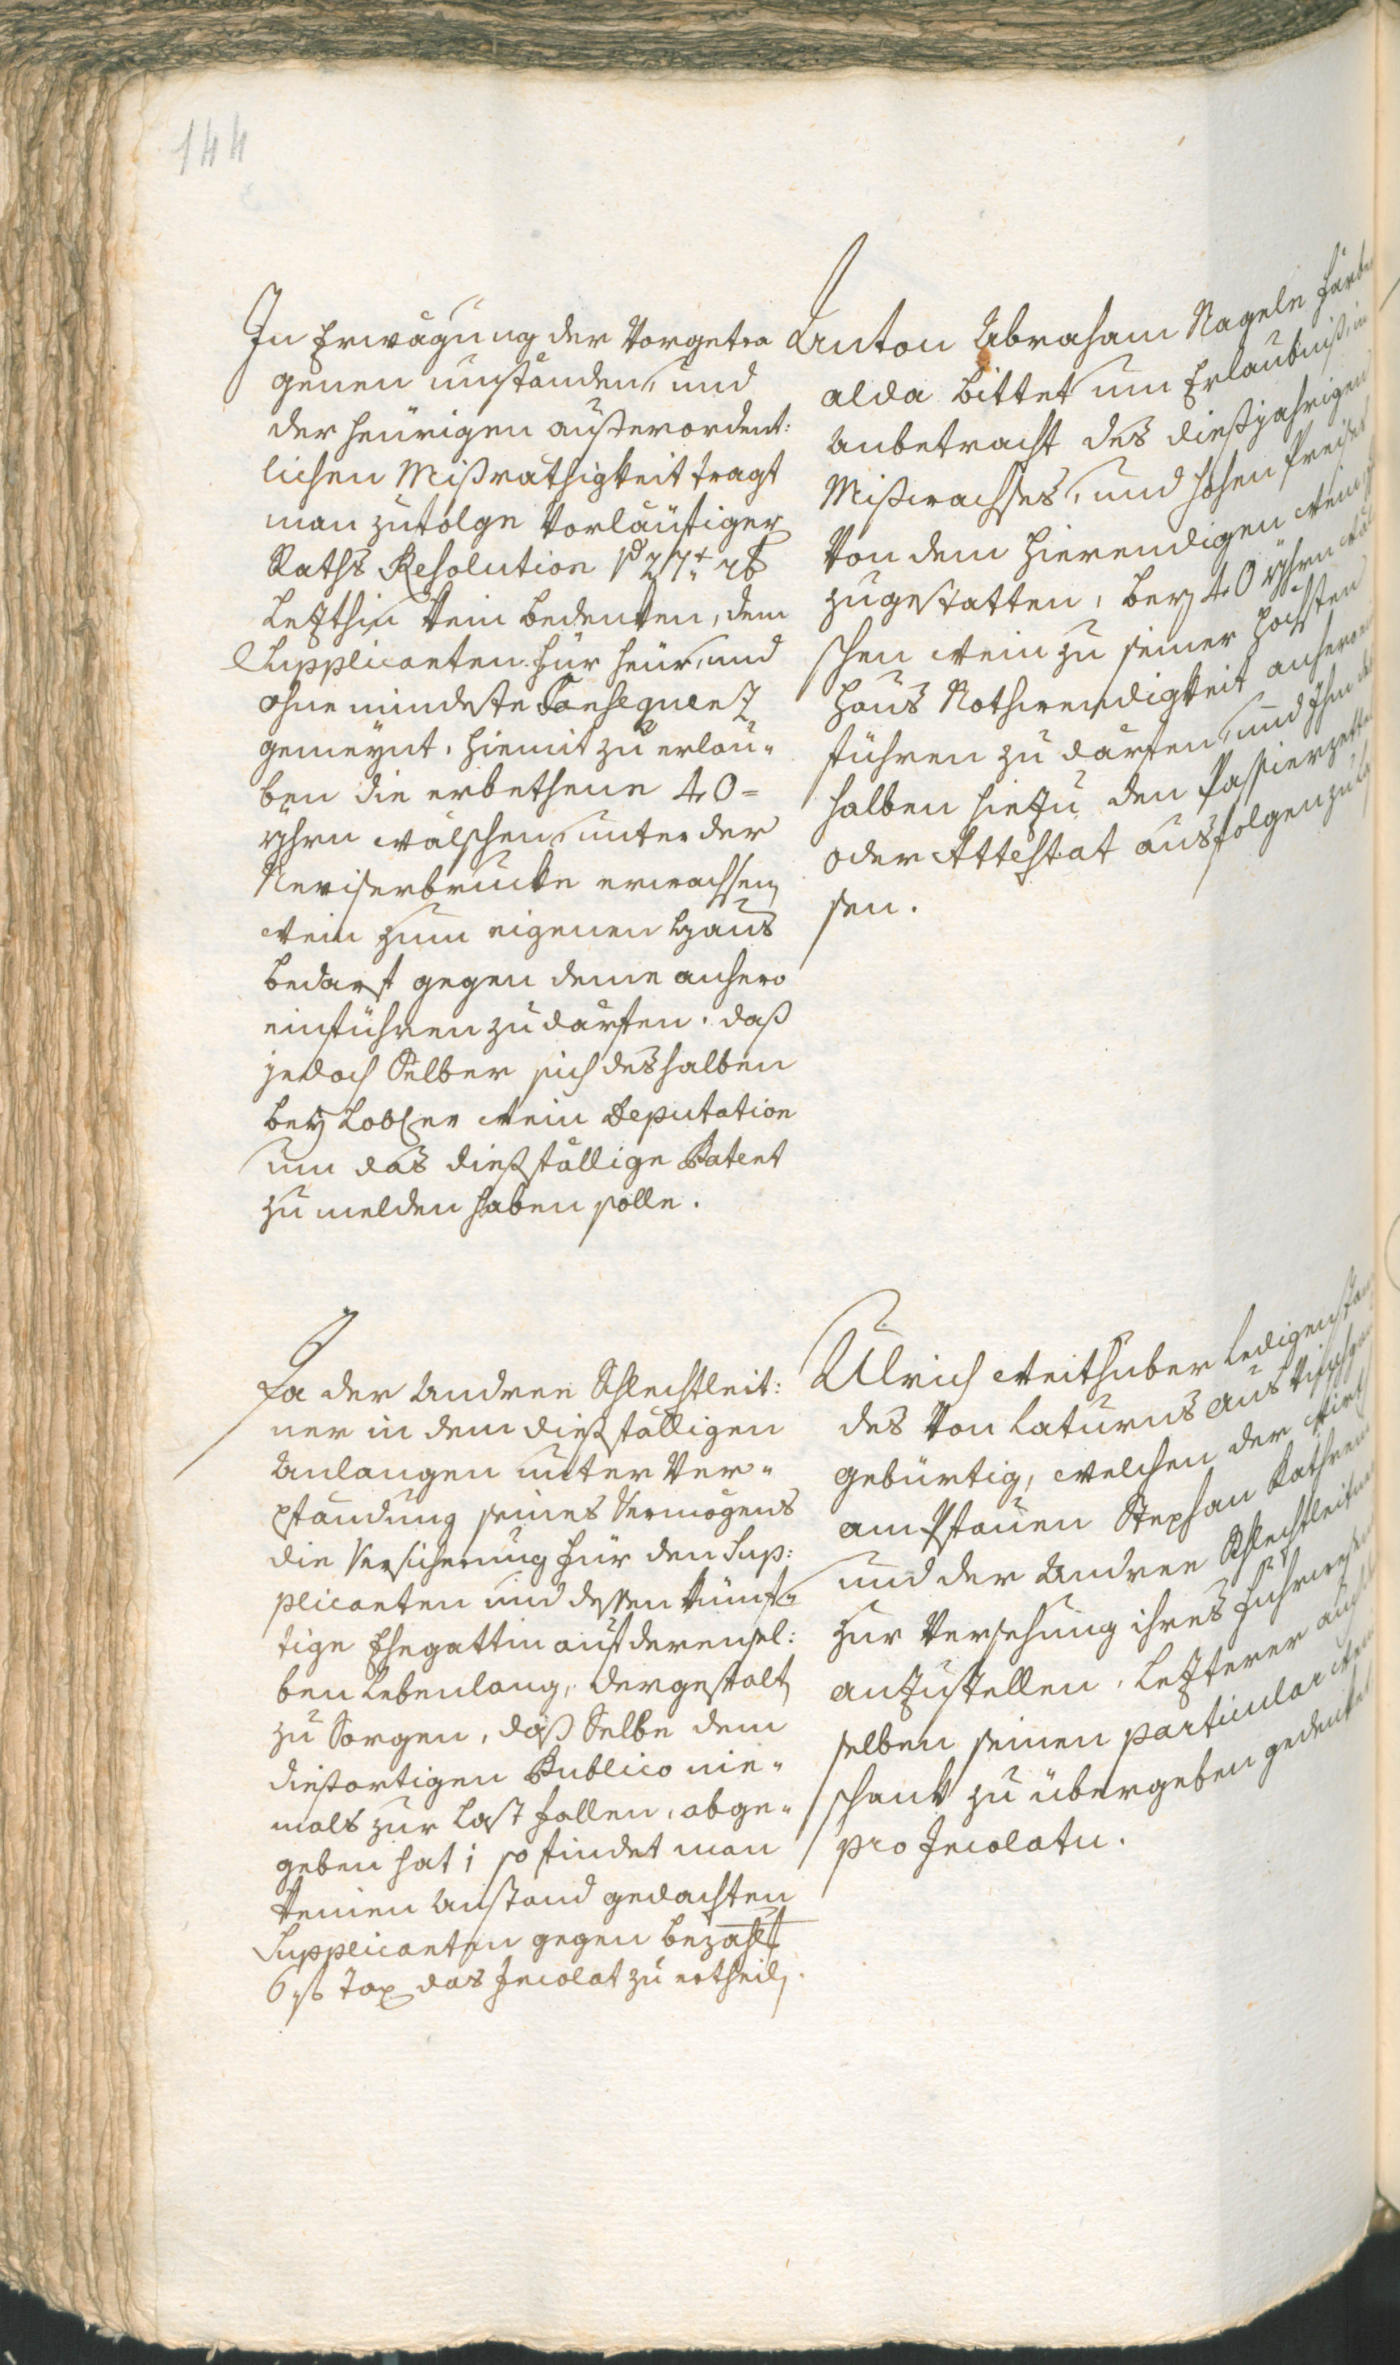 144
In Erwägung der Vorgetra
genen umständen, und
der heürigen außerordent:
lichen Mißräthigkeit tragt
man zufolge Vorläufiger
Raths Resolution
Letzthin kein bedenken, dem
Supplicanten für heür, und
ohne mindeste Consequenz
gemeynt, hiemit zu erlau„
ben die erbethene 40=
yhrn wälschen, unter der
Neviserbrucke erwachsen
wein zum eigenen Haus
bedarf gegen deme anhero
einführen zu därfen, daß
jedoch Selber sich deshalben
bey Lobl:er wein Deputation
um das dießfällige Patent
zu melden haben solle.
Anton Abraham Nagele Färber
alda bittet um Erlaubniß, in
Anbetracht des dießjahrigen
Mißwachses, und hohen Preises
Von dem hierendigen wein
zugestatten, bey 40 yhrn
schen wein zu seiner höchsten
Haus Nothwendigkeit anhero
führen zu därfen, und Ihm
halben hiezu den Passierzettl
oder Attestat ausfolgen zu
sen.
Da der Andree Schlechtleit:
ner in dem dießfälligen
Anlangen unter Ver„
pfändung seines Vermögens
die Versicherung für den Sup:
plicanten und dessen künf„
tige Ehegattin auf derensel:
ben Lebenlang, dergestalt
zu Sorgen, daß Selbe dem
diesortigen Publico nie„
mals zur Last fallen, abge„
geben hat; so findet man
keinen Anstand gedachten
Supplicanten gegen bezahlt
6 f Tax das Incolat zu ertheilen.
Ulrich Weithuber Ledigen stan
des Von Laturns aus Vischgau
gebürtig, welchen der Wirth
am Pfauen Stephan Kathrein
und der Andree Schlechtleitner
zur Versehung ihres Fuhrwesens
anzustellen, Letzterer auch
selben seinen particular Wein
schank zu übergeben gedenket
pro Incolatu.